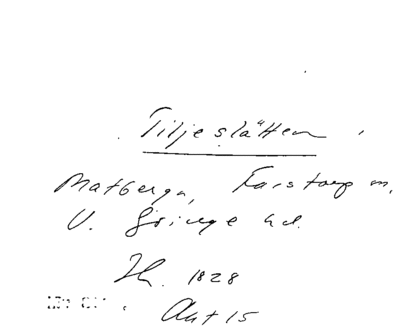 Tiljeslätten
Matberga, Farstorp sn,
V. Göinge hd.
Sk. 1828
Akt 15